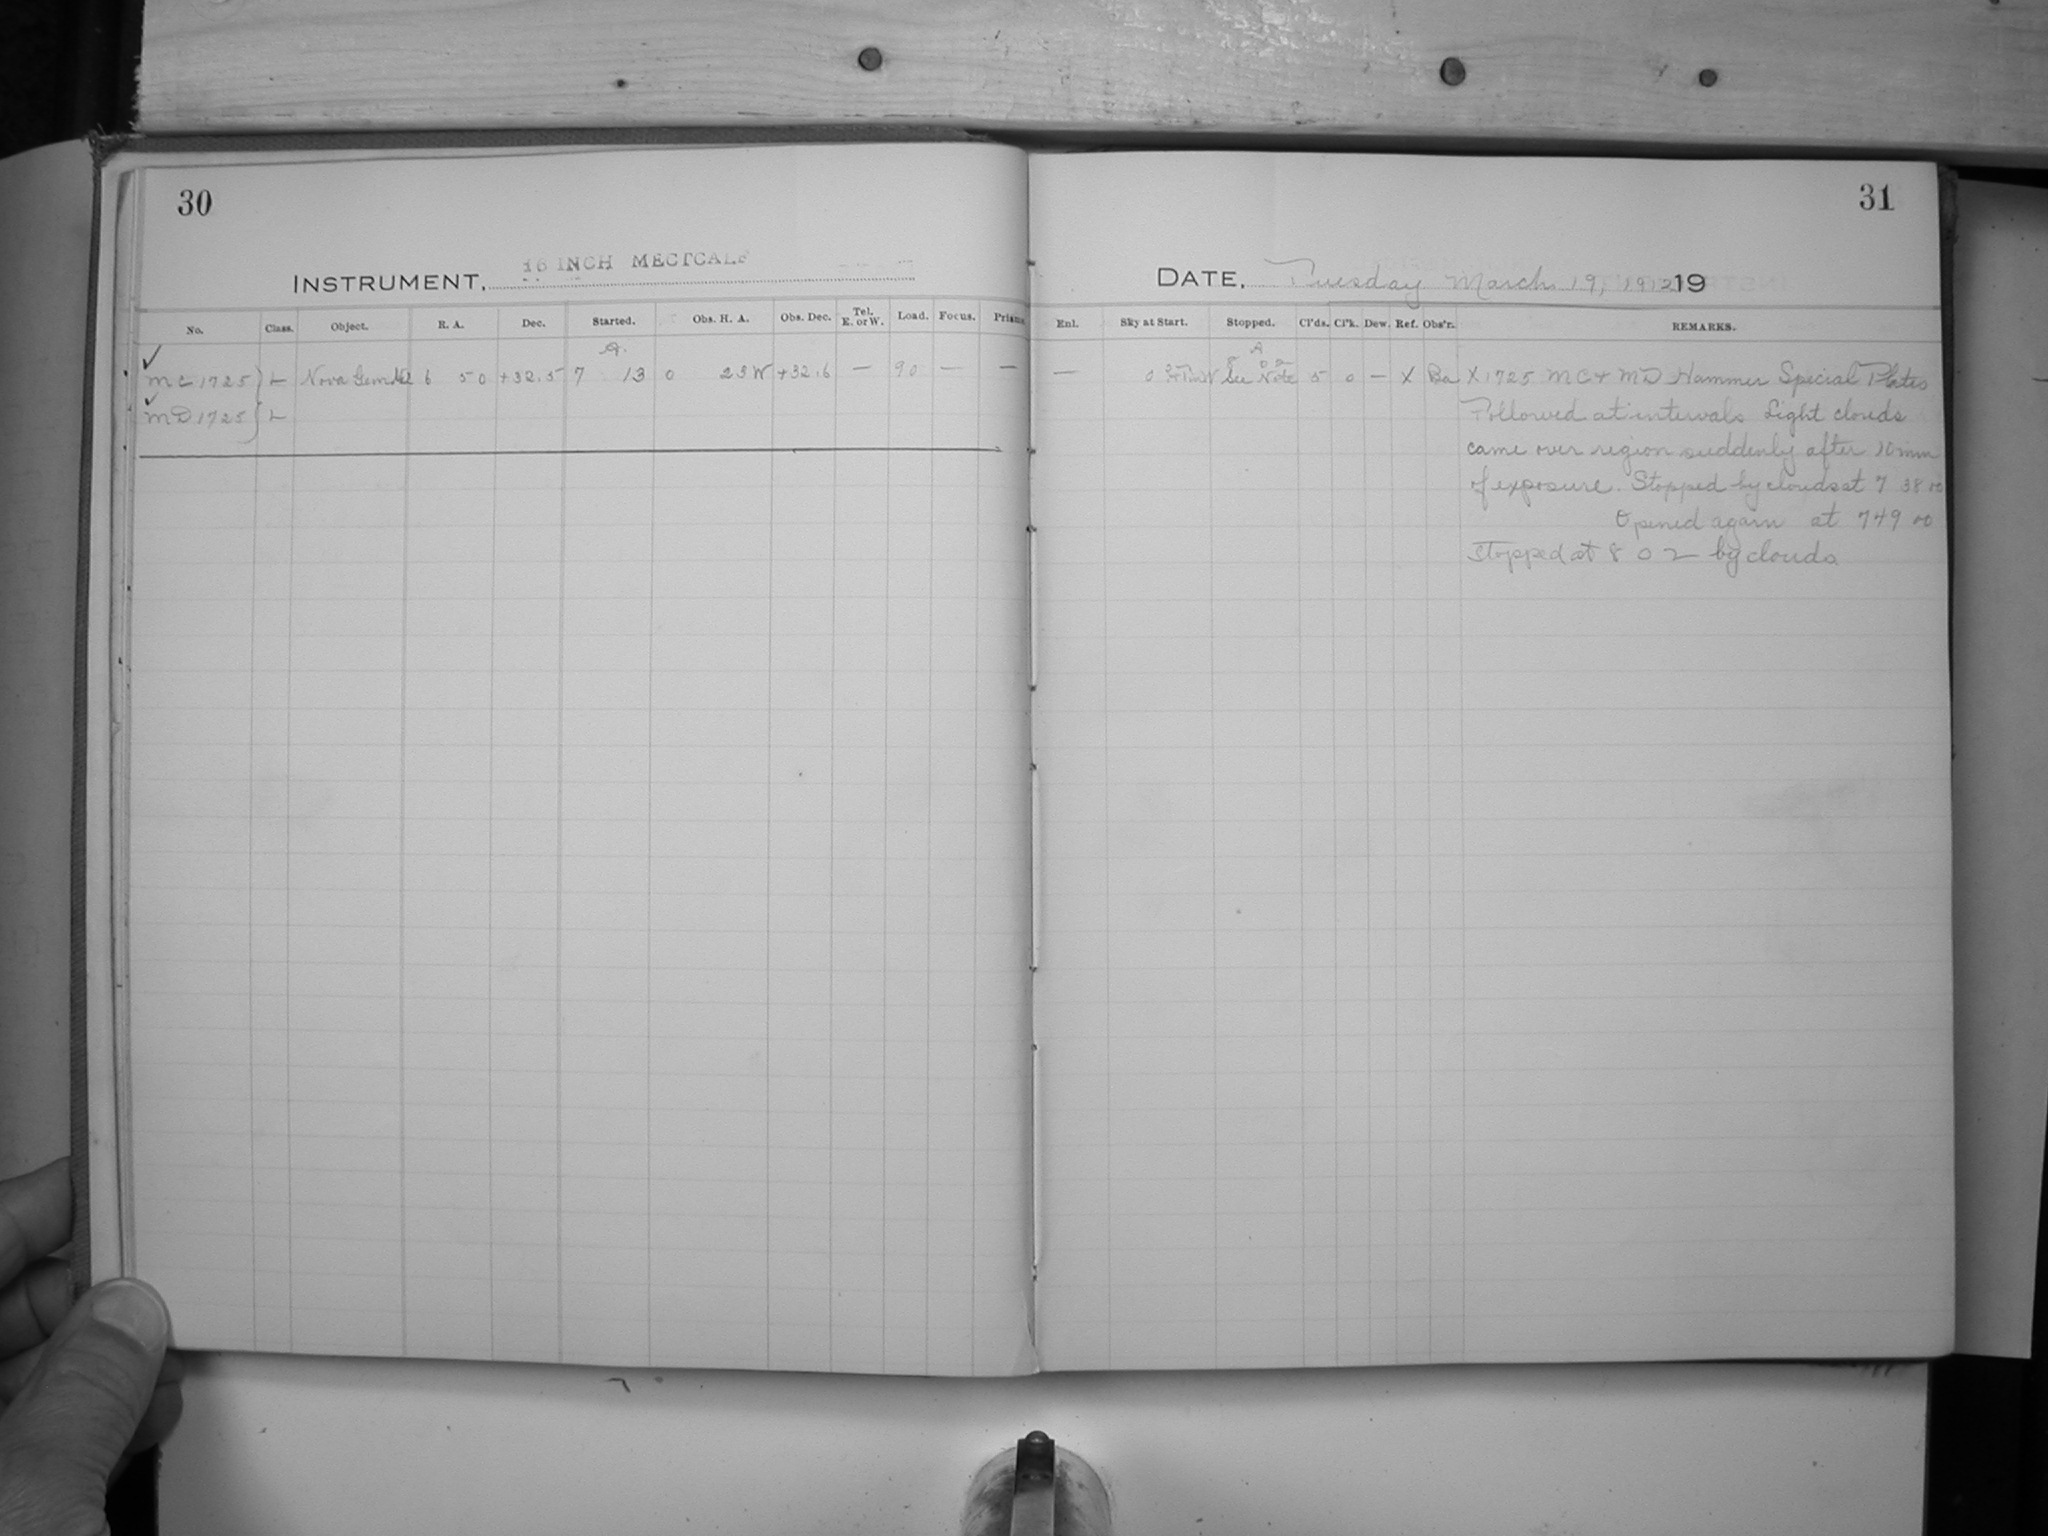 30
31
INSTRUMENT, 16 INCH MECTCALF
DATE, Tuesday March 19, 1912 19
No. Class. Object. R. A. Dec. Started. Obs. H. A. Obs. Dec. Tel. E. or W. Load. Focus. Prisms
Enl. Sky at Start. Stopped. Cl'ds. Cl'k. Dew. Ref. Obs'r. REMARKS.
A.
A
8 02
MC 1725 L Nova Gem 6 50 +32.5 7 13 0 23 W +32.6 — 90 — —
— 0 See Note 5 0 — X Ba X 1725 MC + MD Hammer Special Plates
MD 1725 L
Followed at intervals Light clouds
came over region suddenly after 10 mm
of exposure. Stopped by clouds at 7 38 00
Opened again at 7 49 00
Stopped at 8 0 2 by clouds